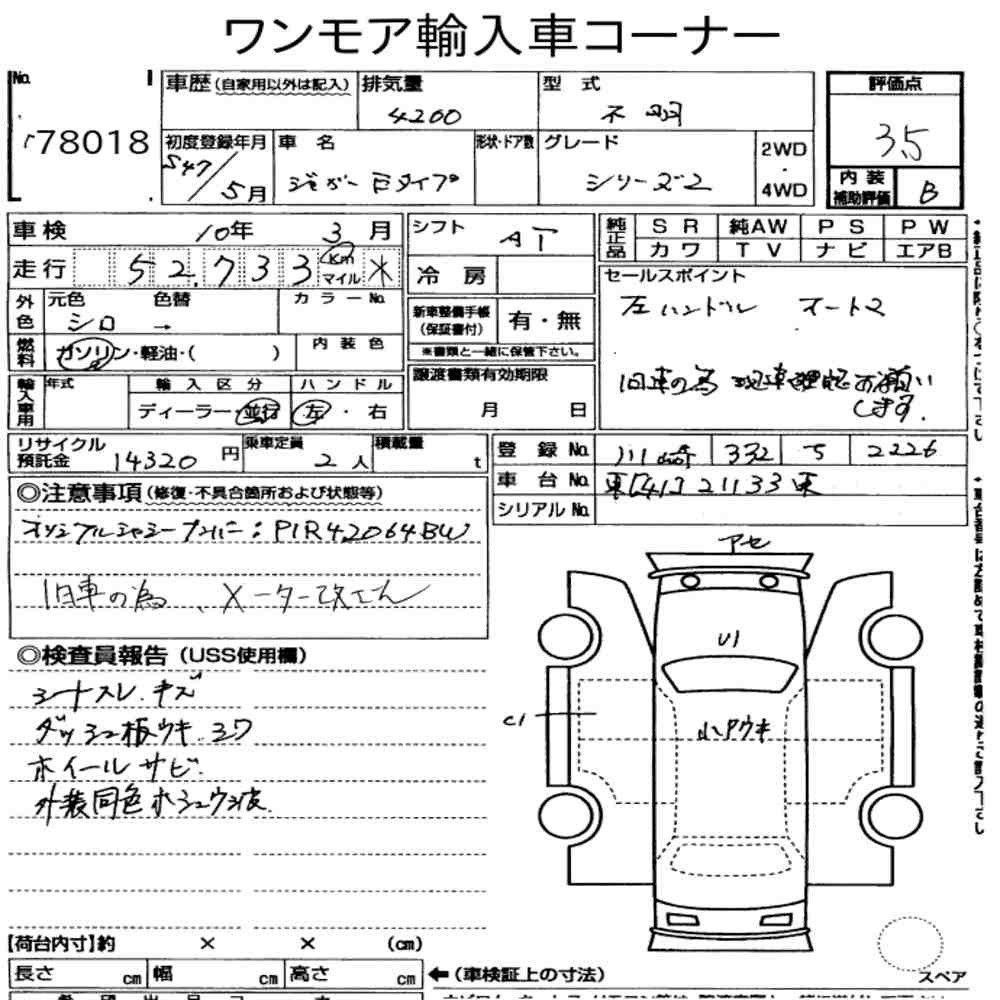 ワンモア輸入車コーナー
No.
78018
車歴(自家用以外は記入)
排気量
4200
型 式
不明
評価点
3.5
初度登録年月
S47/5月
車 名
ジャガーEタイプ
形状・ドア数
グレード
シリーズ2
2WD
4WD
内 装
補助評価
B
車検 10年 3月
走行 52,733 km マイル *
シフト
AT
冷 房
純正品
S R
純AW
P S
P W
カ ワ
T V
ナ ビ
エアB
外色
元色
シロ
色替
→
カラーNo.
新車整備手帳
(保証書付)
有・無
※書類と一緒に保管下さい。
セールスポイント
左ハンドル オートマ
旧車の為 現車確認お願い
します.
燃料
ガソリン・軽油・( )
内 装 色
輸入車用
年式
輸 入 区 分
ディーラー・並行
ハ ン ド ル
左 ・ 右
譲渡書類有効期限
月 日
リサイクル
預託金
14320円
乗車定員
2人
積載量
t
登 録 No.
川崎 332 ち 2226
車 台 No.
東[41]21133東
シリアル No.
◎注意事項(修復・不具合箇所および状態等)
オリジナルシャシーナンバー:P1R42064BW
旧車の為、メーター改ざん
◎検査員報告(USS使用欄)
シートスレ.キズ
ダッシュ板ウキ.シワ
ホイールサビ.
外装同色ホシュウ2波.
アセ
U1
C1
小アウキ
【荷台内寸】約 × × (cm)
長さ cm
幅 cm
高さ cm
←(車検証上の寸法)
スペア